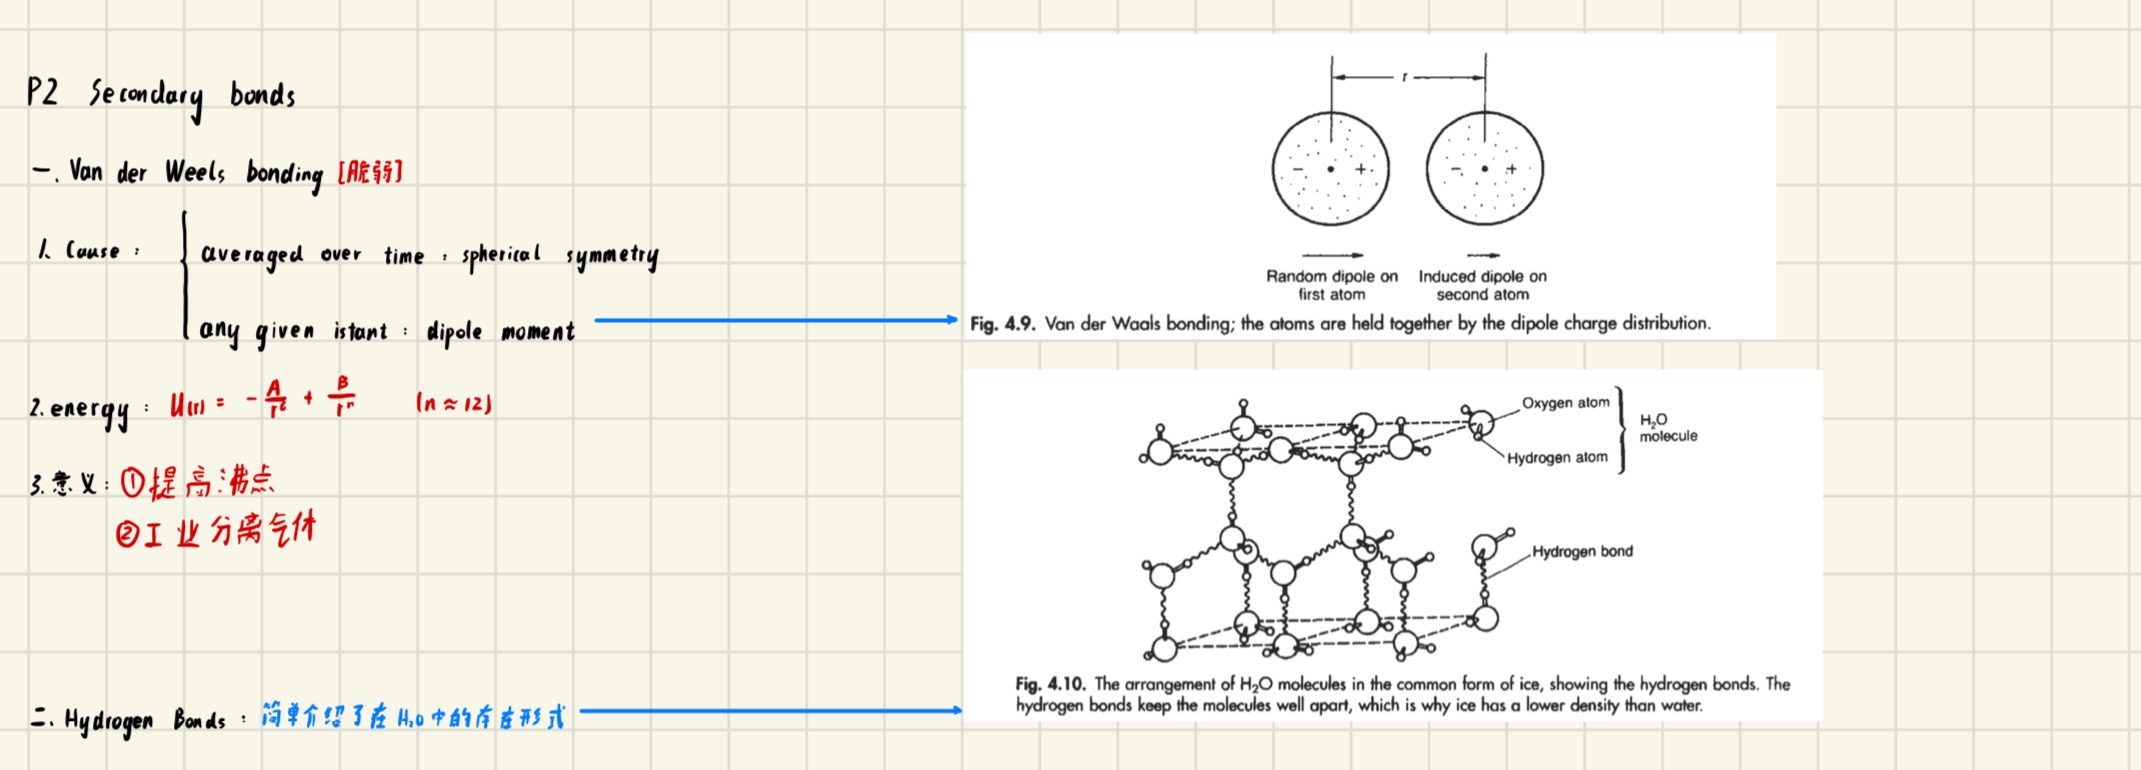 P2 Secondary bonds
一. Van der Weels bonding [脆弱]
1. Cause :
averaged over time : spherical symmetry
any given istant : dipole moment
2. energy : U(r) = - A/r⁶ + B/rⁿ (n ≈ 12)
3. 意义: ①提高沸点
②工业分离气体
二. Hydrogen Bonds : 简单介绍了在H₂O中的存在形式
r
- +
- +
Random dipole on first atom
Induced dipole on second atom
Fig. 4.9. Van der Waals bonding; the atoms are held together by the dipole charge distribution.
Oxygen atom
H₂O
molecule
Hydrogen atom
Hydrogen bond
Fig. 4.10. The arrangement of H₂O molecules in the common form of ice, showing the hydrogen bonds. The
hydrogen bonds keep the molecules well apart, which is why ice has a lower density than water.